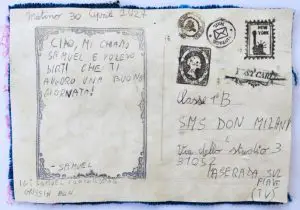 CIAO, MI CHIAMO
SAMUEL E VOLEVO
DIRTI CHE TI
AUGURO UNA BUONA
GIORNATA!
-SAMUEL
NEW YORK
Classe 1ªB
SMS DON MILANI
Via dello studio 3
31052
MASERADA SUL
PIAVE
(TV)